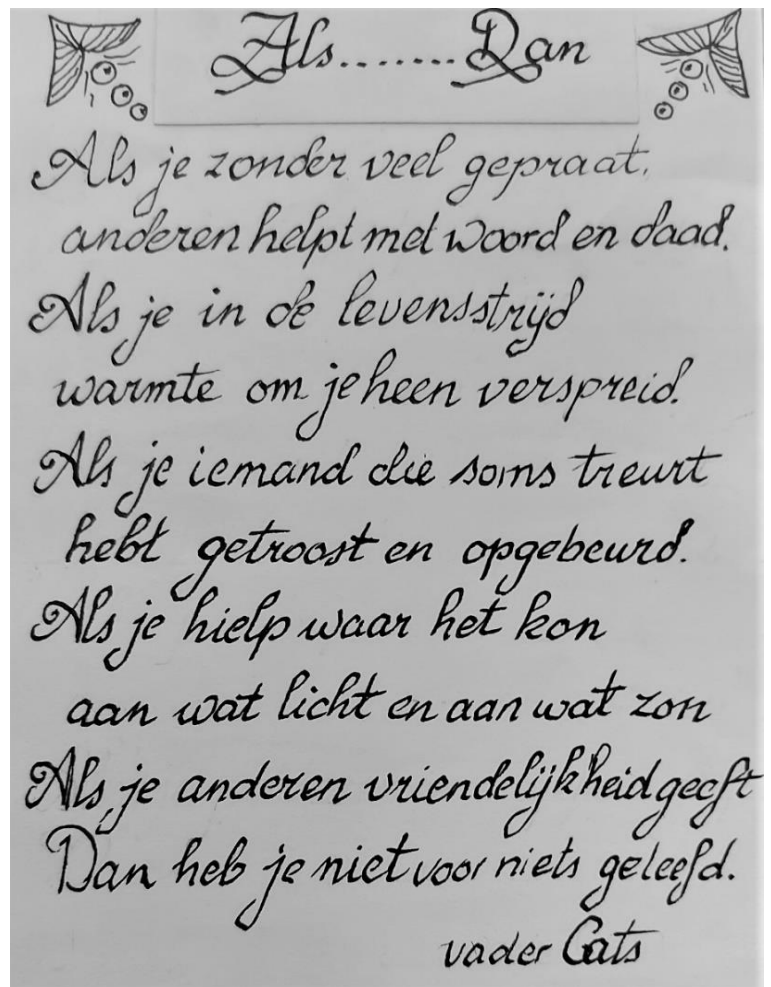 Als.......Dan
Als je zonder veel gepraat,
anderen helpt met woord en daad.
Als je in de levensstrijd
warmte om je heen verspreid.
Als je iemand die soms treurt
hebt getroost en opgebeurd.
Als je hielp waar het kon
aan wat licht en aan wat zon
Als je anderen vriendelijkheid geeft
Dan heb je niet voor niets geleefd.
vader Cats